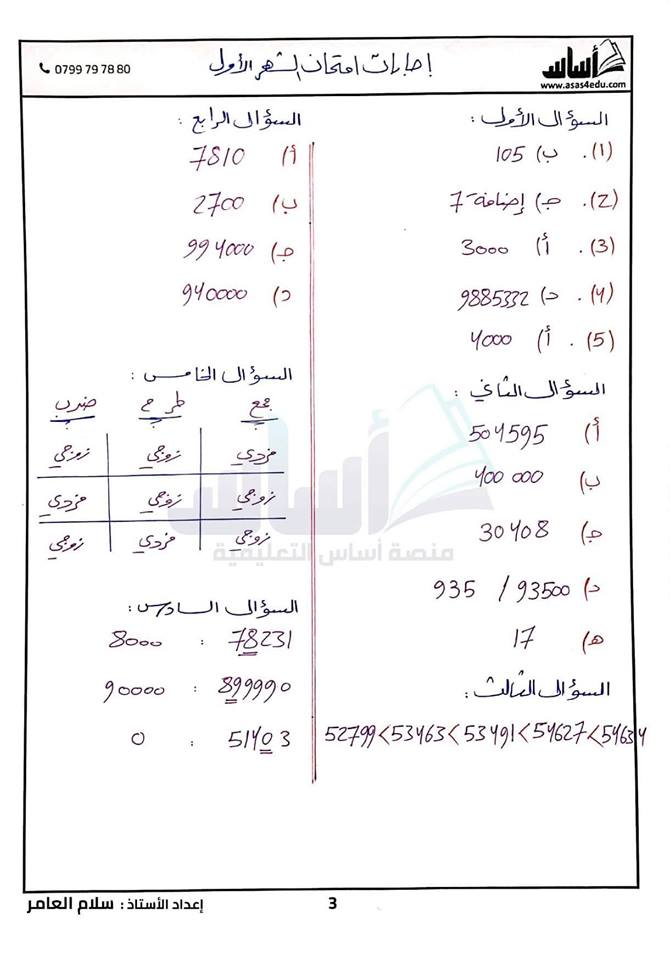 أساس
www.asas4edu.com
إجابات امتحان الشهر الأول
0799 79 78 80
السؤال الأول :
(1). ب) 105
(2). ج) إضافة 7
(3). أ) 3000
(4). د) 9885332
(5). أ) 4000
السؤال الثاني :
أ) 504595
ب) 400 000
ج) 30408
د) 93500 / 935
هـ) 17
السؤال الثالث :
52799<53463<53491<54627<54634
السؤال الرابع :
أ) 7810
ب) 2700
ج) 994000
د) 940000
السؤال الخامس :
جمع طرح ضرب
فردي زوجي زوجي
زوجي زوجي فردي
زوجي فردي زوجي
السؤال السادس :
78231 : 8000
899990 : 90000
51403 : 0
أساس
منصة أساس التعليمية
إعداد الأستاذ : سلام العامر
3